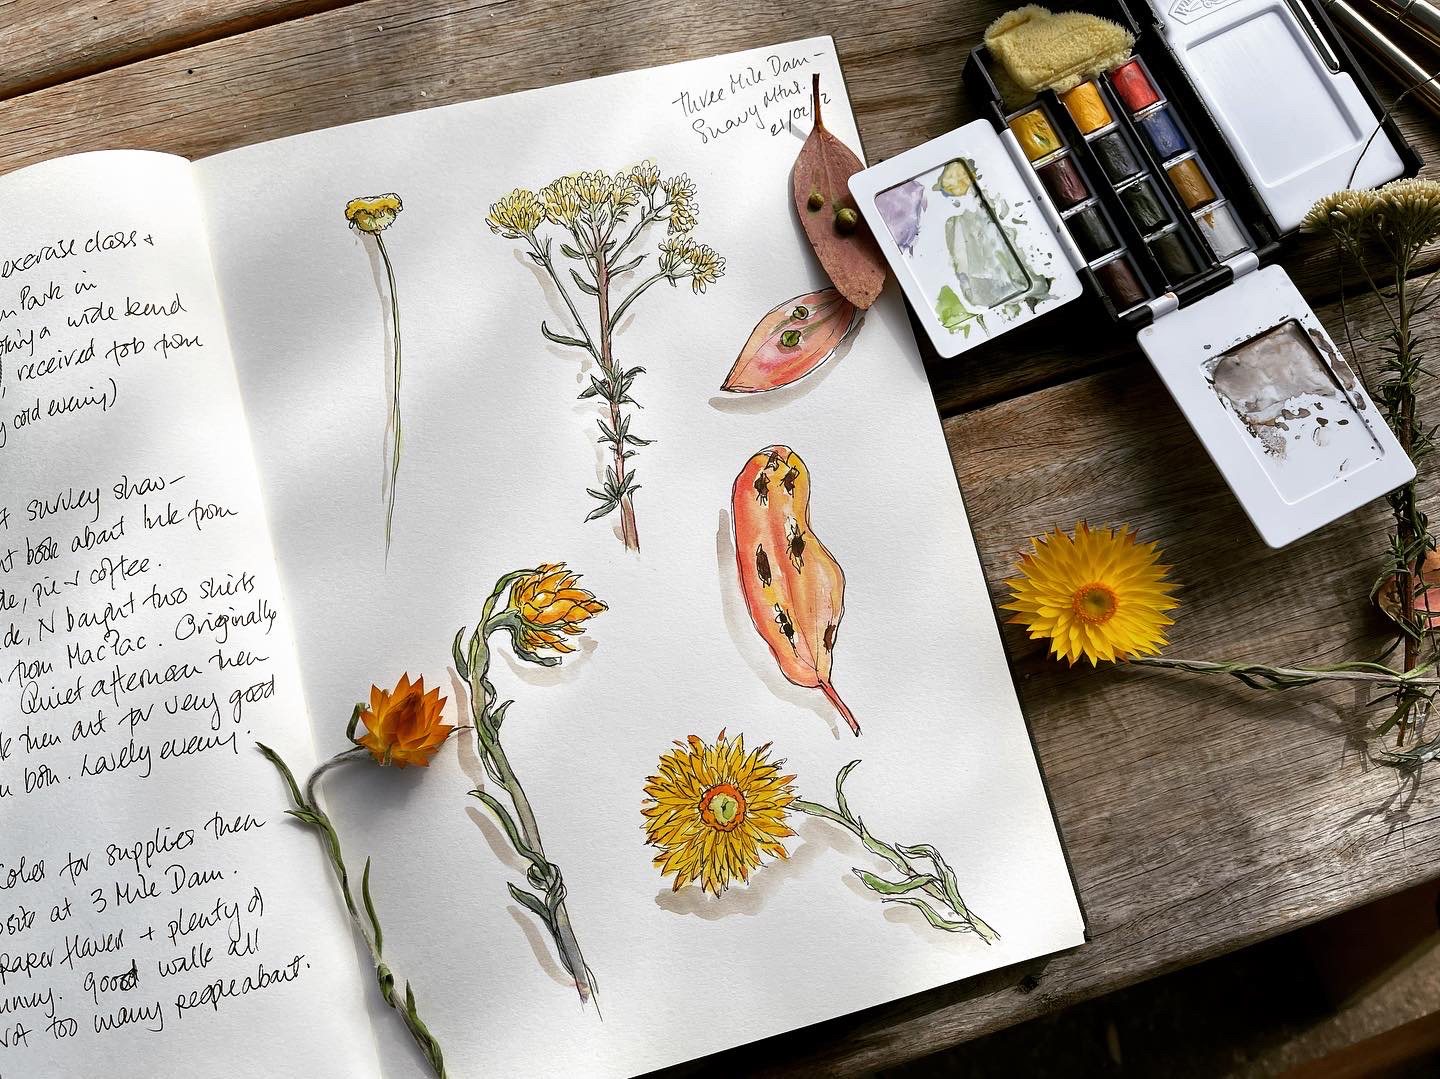 exercise class +
Park in
a wide bend
received job from
cold evening)
survey show -
book about Ink from
pie + coffee.
N bought two shirts
from MacPac. Originally
Quiet afternoon then
then out for very good
both. Lovely evening.
Coles for supplies then
at 3 Mile Dam.
paper flower + plenty of
Good walk all
Not too many people about.
Three Mile Dam -
Snowy Mtns.